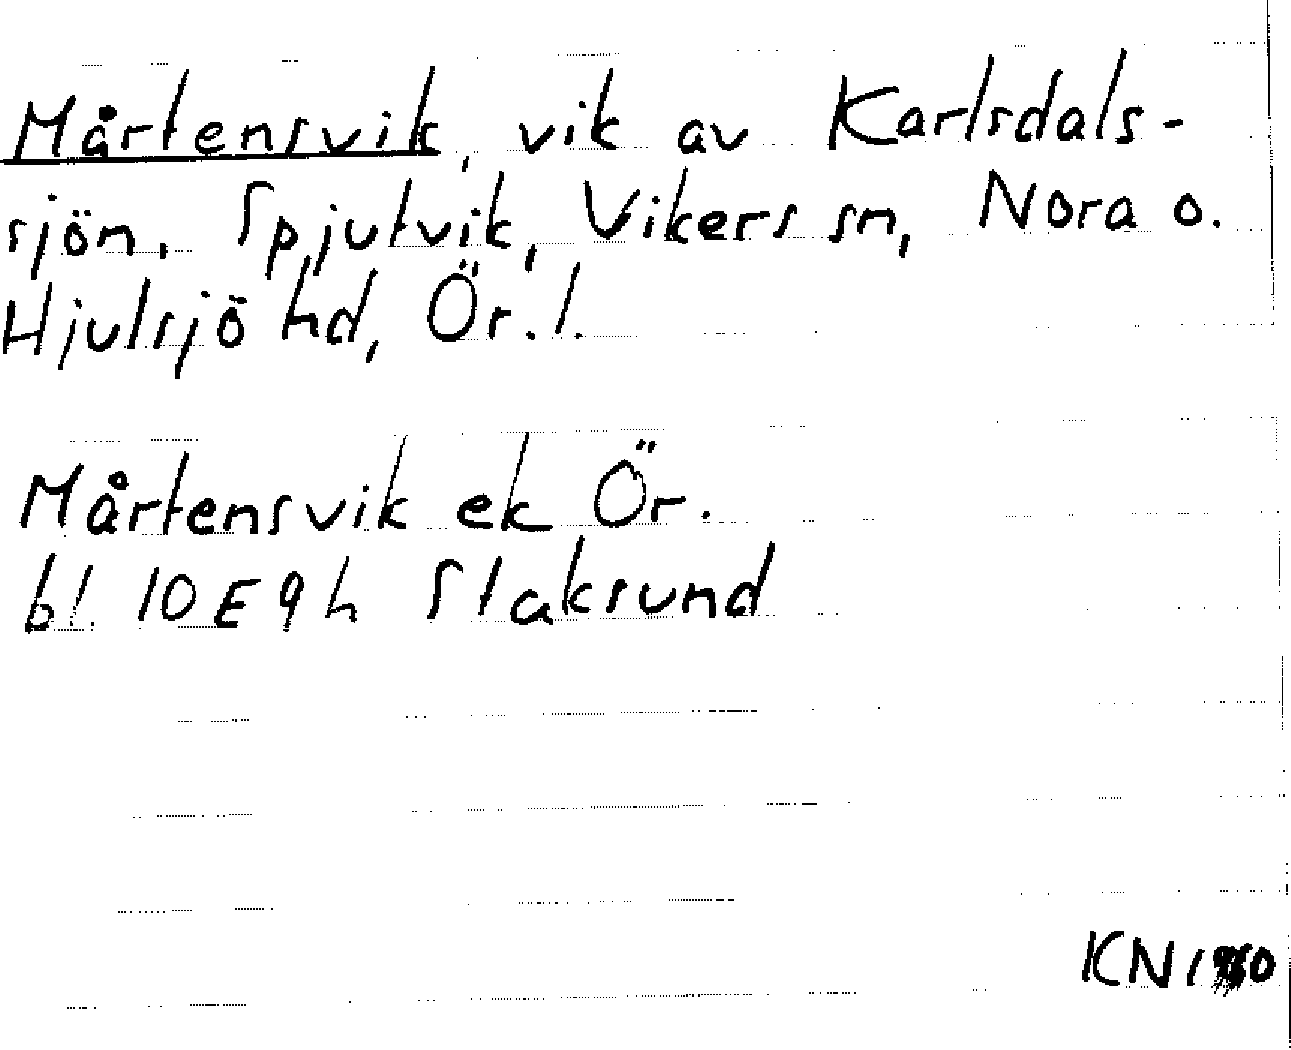 Mårtensvik, vik av Karlsdals-
sjön, Spjutvik, Vikers sn, Nora o.
Hjulsjö hd, Ör. l.
Mårtensvik ek Ör.
bl. 10E9h Slaksund
KN